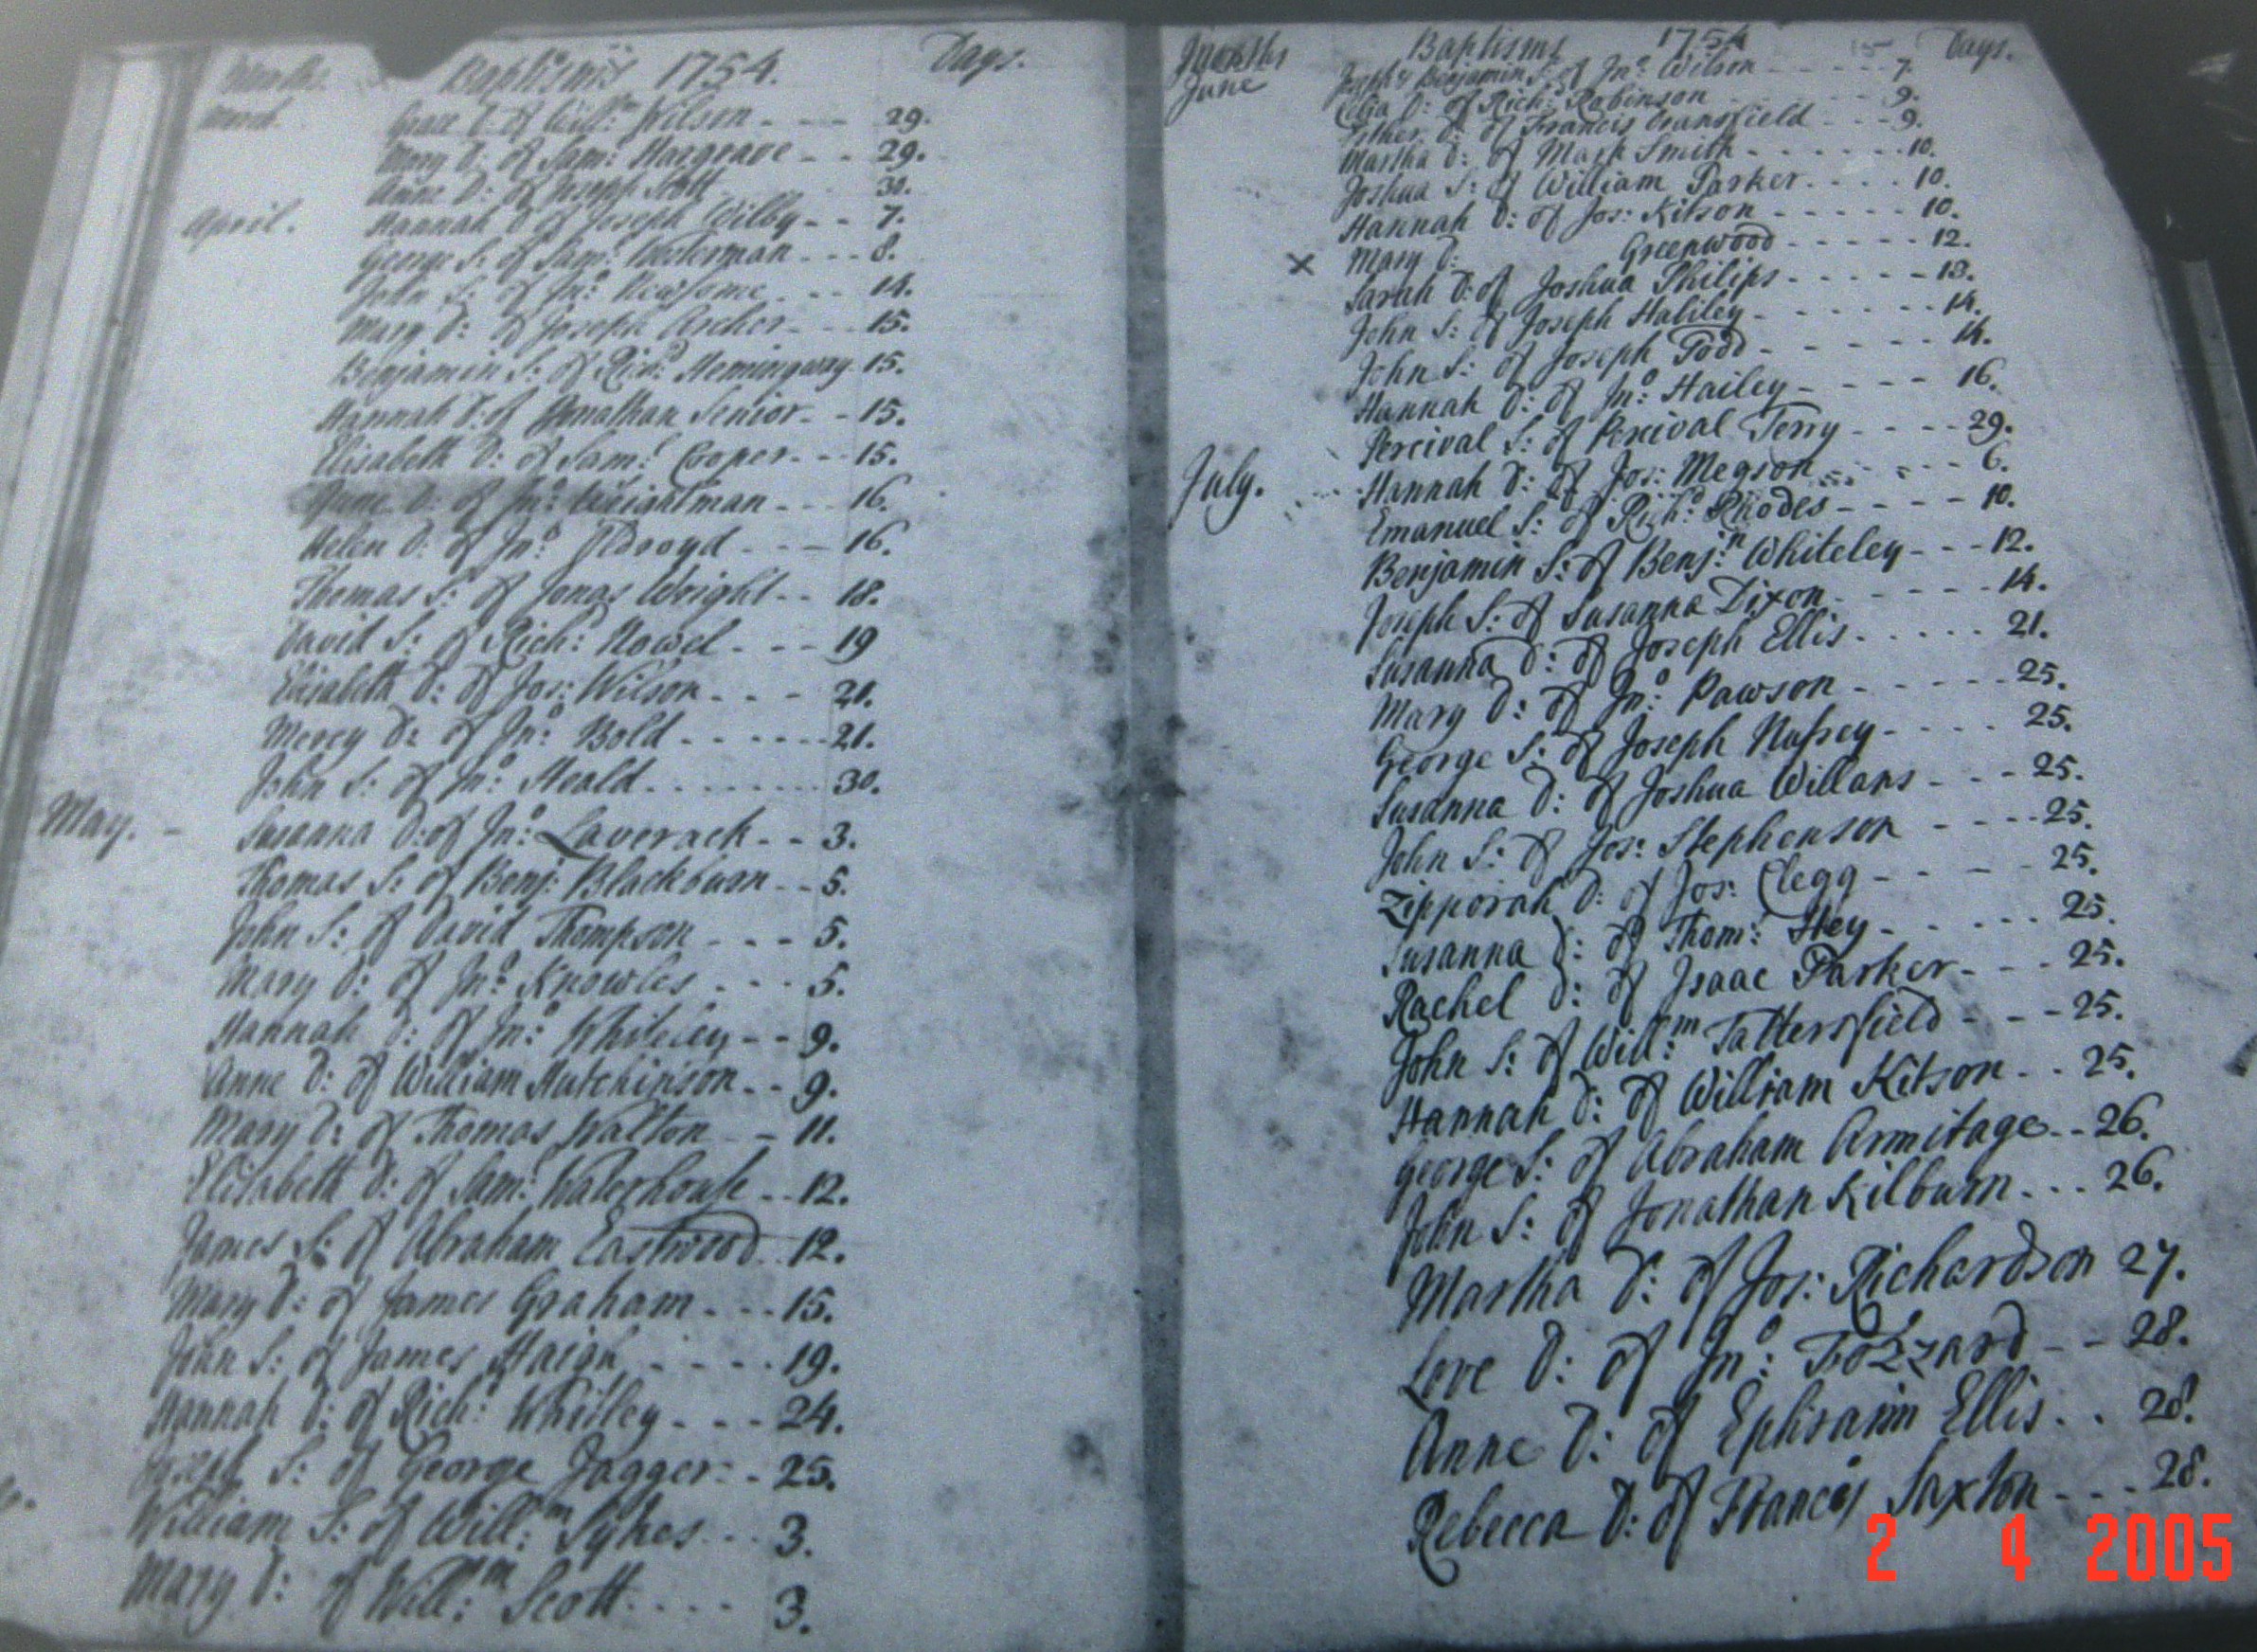 Months Baptisms 1754. Days.
March Grace D: of Will:m Wilson - - - - 29.
Mary D: of Sam: Hargrave - - 29.
Anne D: of Joseph Scott 30.
April. Hannah D: of Joseph Wilby - - 7.
George S: of Sam: Waterman - - - 8.
John S: of Jno: Newsome - - - 14.
Mary D: of Joseph Archer - - - 15.
Benjamin S: of Richd: Hemingway 15.
Hannah D: of Jonathan Senior - - 15.
Elisabeth D: of Sam:l Cooper - - - 15.
D: of Jno: Wrightman - - - 16.
Helen D: of Jno: Oldroyd - - - - 16.
Thomas S: of Jonas Wright - - 18.
David S: of Rich:d Nowel - - - - 19
Elisabeth D: of Jos: Wilson - - - - 21.
Mercy D: of Jno: Bold - - - - - - - 21.
John S: of Jno: Heald - - - - - - - - 30.
May. - Susanna D: of Jno: Laverack - - 3.
Thomas S: of Benj: Blackburn - - 5.
John S: of David Thompson - - - - 5.
Mary D: of Jno: Knowles - - - - 5.
Hannah D: of Jno: Whiteley - - 9.
Anne D: of William Hutchinson - - 9.
Mary D: of Thomas Walton - - 11.
Elisabeth D: of Sam: Waterhouse - - 12.
James S: of Abraham Eastwood - - 12.
Mary D: of James Graham - - - - 15.
John S: of James Haigh - - - - - 19.
Hannah D: of Rich:d Whitley - - - - 24.
Joseph S: of George Jagger - - 25.
William S: of Will:m Sykes - - - 3.
Mary D: of Will:m Scott - - - - 3.
Months Baptisms 1754 15 Days.
June Benjamin S: of Jno: Wilson - - - - - 7.
Celia D: of Rich: Robinson - - - - - 9.
Esther D: of Francis Cransfield - - - 9.
Martha D: of Mark Smith - - - - - - 10.
Joshua S: of William Parker - - - - 10.
Hannah D: of Jos: Kitson - - - - - 10.
× Mary D: Greenwood - - - - - 12.
Sarah D: of Joshua Philips - - - - - 13.
John S: of Joseph Haliley - - - - - - 14.
John S: of Joseph Todd - - - - - - 14.
Hannah D: of Jno: Hailey - - - - 16.
Percival S: of Percival Terry - - - - 29.
July. Hannah D: of Jos: Megson - - - - 6.
Emanuel S: of Rich:d Rhodes - - - - 10.
Benjamin S: of Benj:n Whiteley - - - 12.
Joseph S: of Susanna Dixon - - - - - - 14.
Susanna D: of Joseph Ellis - - - - - 21.
Mary D: of Jno: Pawson - - - - - - 25.
George S: of Joseph Nussey - - - - 25.
Susanna D: of Joshua Willans - - - 25.
John S: of Jos: Stephenson - - - - 25.
Zipporah D: of Jos: Clegg - - - - - 25.
Susanna D: of Thom: Hey - - - - - 25.
Rachel D: of Isaac Parker - - - 25.
John S: of Will:m Tattersfield - - - 25.
Hannah D: of William Kitson - - 25.
George S: of Abraham Armitage - - 26.
John S: of Jonathan Kilburn - - - 26.
Martha D: of Jos: Richardson 27.
Love D: of Jno: Fozzard - - 28.
Anne D: of Ephraim Ellis - - 28.
Rebecca D: of Francis Saxton - - - 28.
2 4 2005